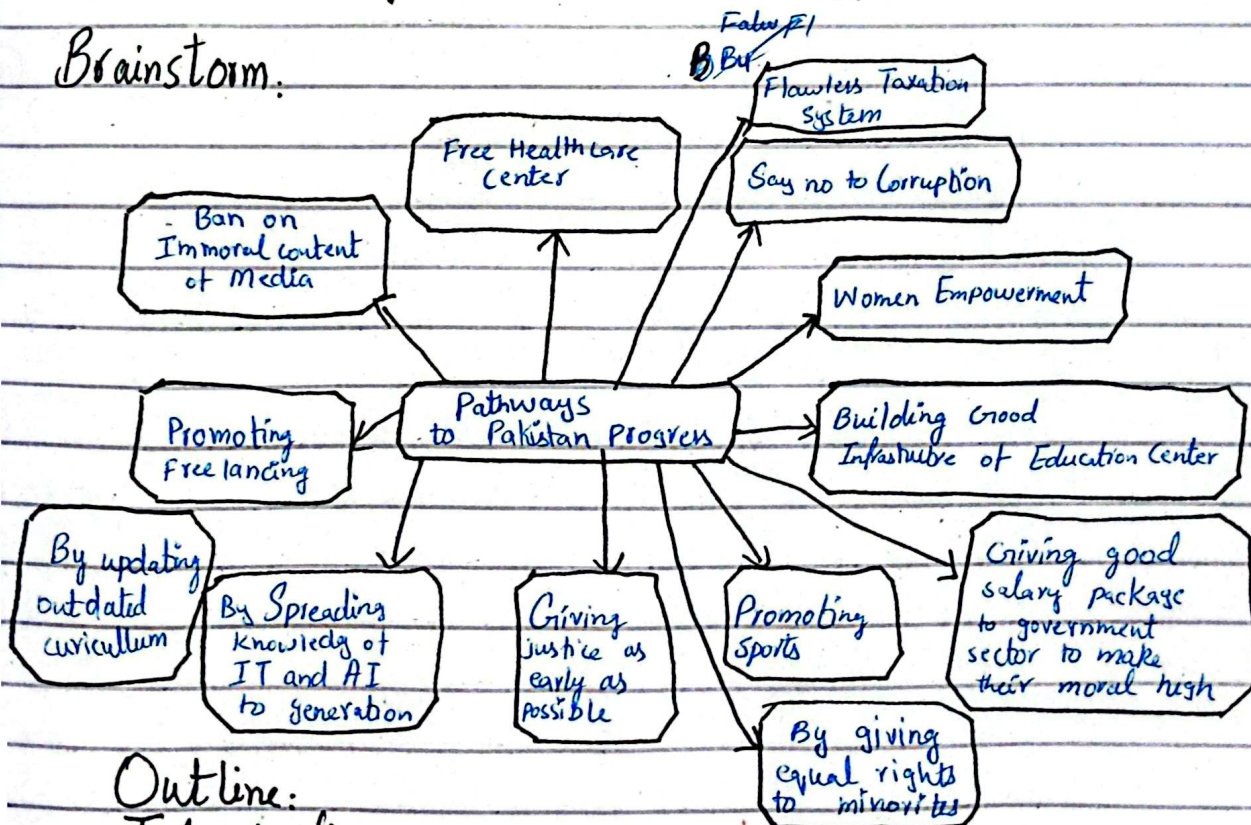 Brainstorm:
Flawless Taxation
System
Free Healthcare
Center
Say no to Corruption
Ban on
Immoral content
of Media
Women Empowerment
Pathways
to Pakistan Progress
Promoting
Free lancing
Building Good
Infrastrubre of Education Center
By updating
outdated
curicullum
By Spreading
knowledg of
IT and AI
to generation
Giving
justice as
early as
possible
Promoting
sports
Giving good
salary package
to government
sector to make
their moral high
By giving
equal rights
to minorites
Outline: